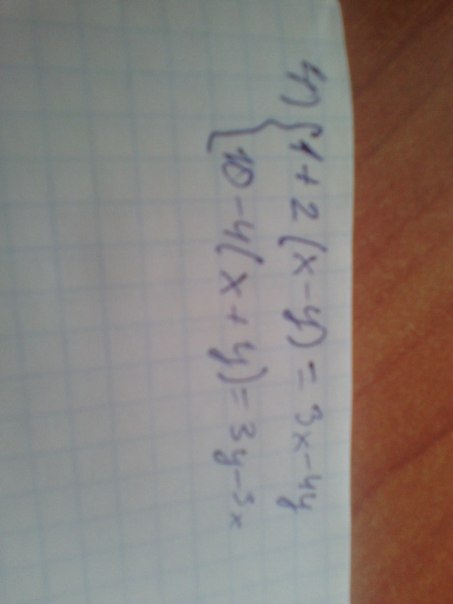 4) { 1 + 2 (x - y) = 3x - 4y
10 - 4 (x + y) = 3y - 3x